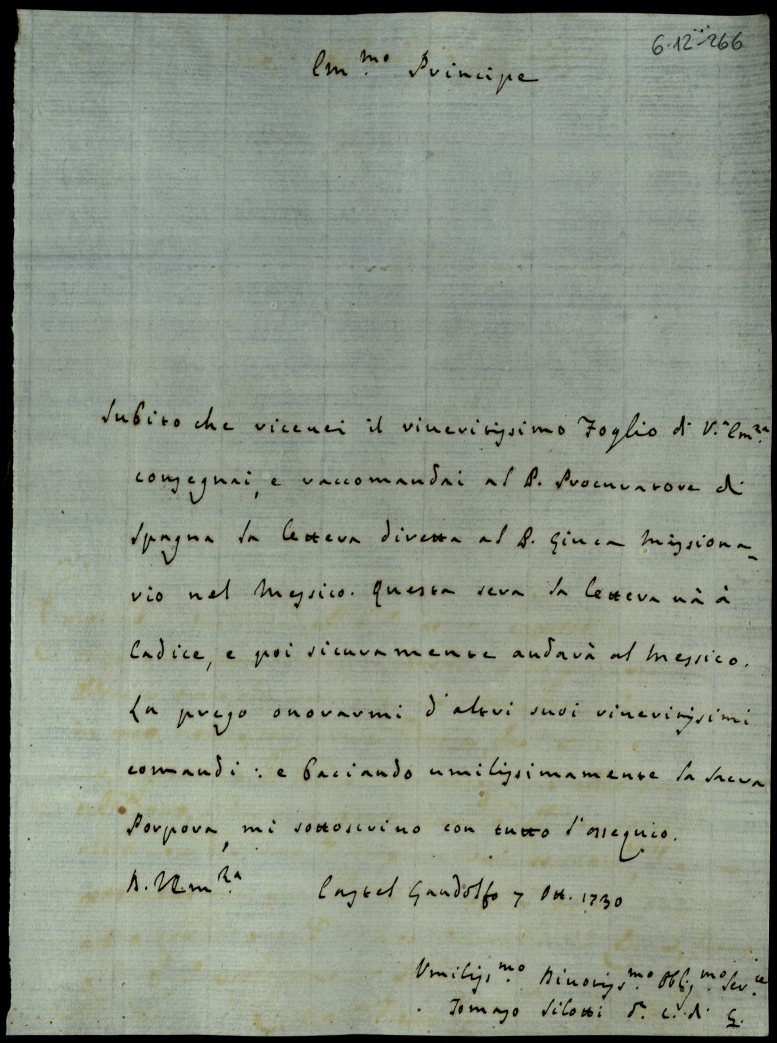 6-12-266
Em.mo Principe
Subito che ricevei il riveritissimo Foglio di V.a Em.za
consegnai, e raccomandai al P. Procuratore di
Spagna la lettera diretta al P. Giuca Missiona-
rio nel Messico. Questa sera la lettera và à
Cadice, e poi sicuramente andarà al Messico.
La prego onorarmi d'altri suoi riveritissimi
comandi: e baciando umilissimamente la Sacra
Porpora, mi sottoscrivo con tutto l'ossequio.
Castel Gandolfo 7 Ott. 1730
Umiliss.mo Divotiss.mo Obblig.mo Ser.re
Tomaso Silotti d. C. di G.